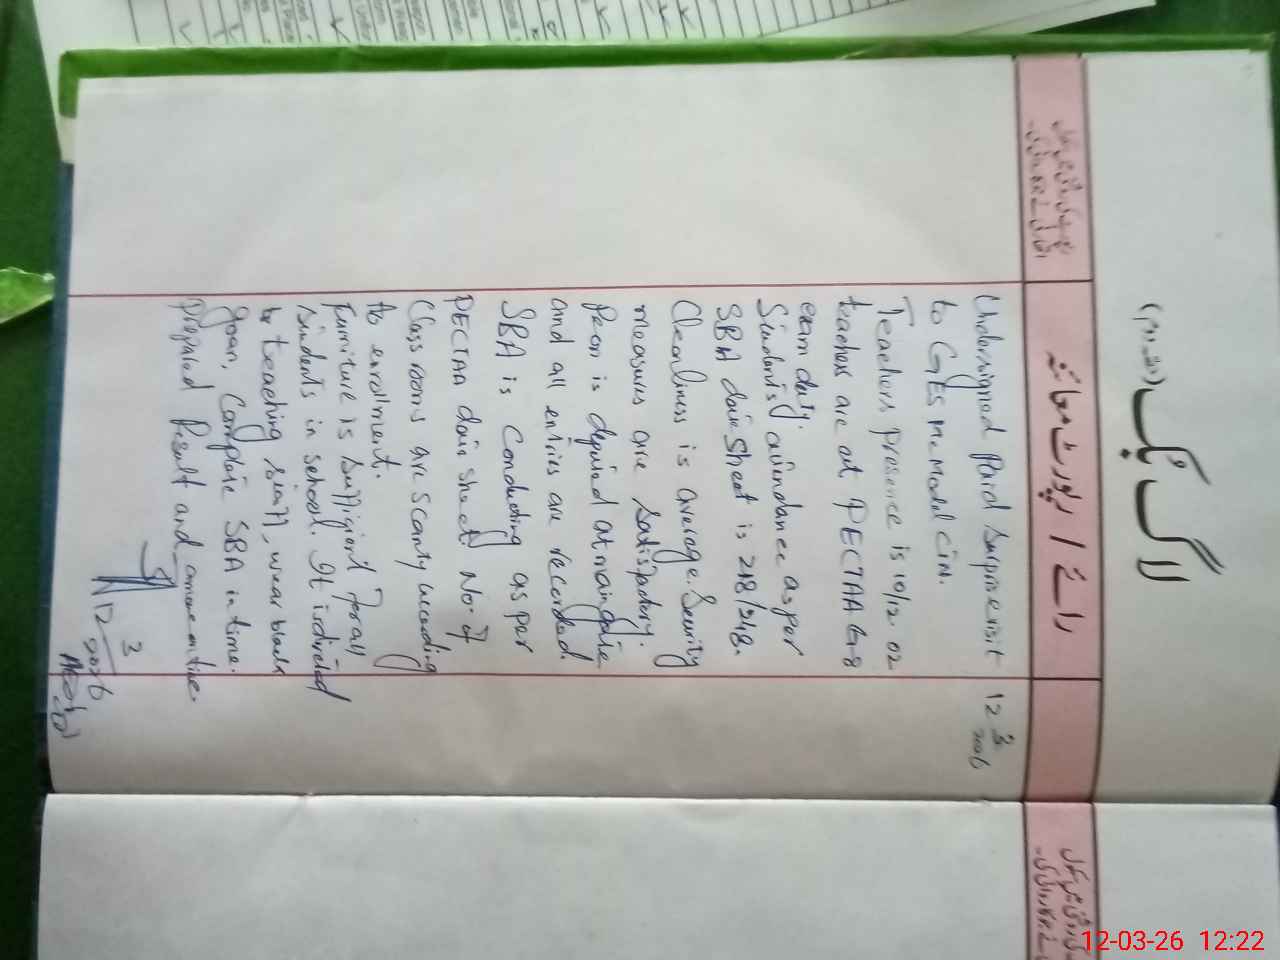 لاگ بُک
رائے / رپورٹ معائنہ
12 3 2026
Undersigned paid surprise visit
to GES Mc Model Cim.
Teachers presence is 10/12. 02
teachers are at PECTAA G-8
exam duty.
Students attendance as per
SBA date sheet is 218/248.
Cleanliness is average. Security
measures are satisfactory.
Peon is deputed at main gate
and all entries are recorded.
SBA is conducting as per
PECTAA date sheet No. of
Class rooms are scanty according
to enrollment.
Furniture is sufficient for all
Students in school. It is directed
to teaching staff, wear black
gown, Complete SBA in time.
prepared Result and
12 3 2026
12-03-26 12:22